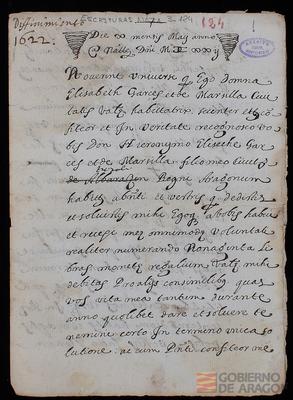 Diffiniment
1622:
ESCRITURAS
184
Die mensis Maij anno
Noverint universi q Ego domna
Elisabeth Garces et de Marsilla Civi
tatis Valt habitatrix, scienter et
fiteor et In Veritate recognosco vo
bis don Hieronymo Elische Gar
ces et de Marsilla filio meo Civit
de Albarazin Regni Aragonum
habit absenti et vestris q dedistis
et solvistis mihi Egoq a vobis habui
et recepi mee omnimodę voluntati
realiter numerando Nonaginta li
bras monetę regalium Valt mihi
debitas Pro alijs consimilibus quas
vos vita mea tantum durante
anno quolibet dare et solvere te
nemini certo In termino unica so
lutione. ac cum Pnti confiteor me
GOBIERNO
DE ARAGON